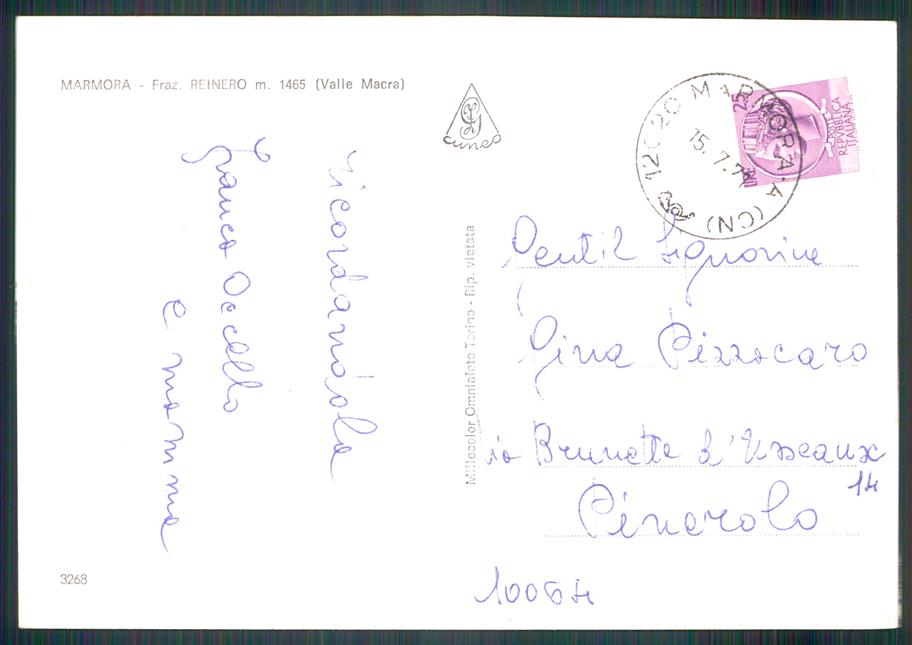 MARMORA - Fraz. REINERO m. 1465 (Valle Macra)
ricordandola
Franco Occello
e mamma
3268
CUNEO
Millecolor Omniafoto Torino - Rip. vietata
12020 MARMORA·A (CN)
15.7.7
LIRE 25
POSTE
REPVBBLICA
ITALIANA
Gentil Signorina
Gina Pizzocaro
via Brunetta d'Usseaux
14
Pinerolo
10064